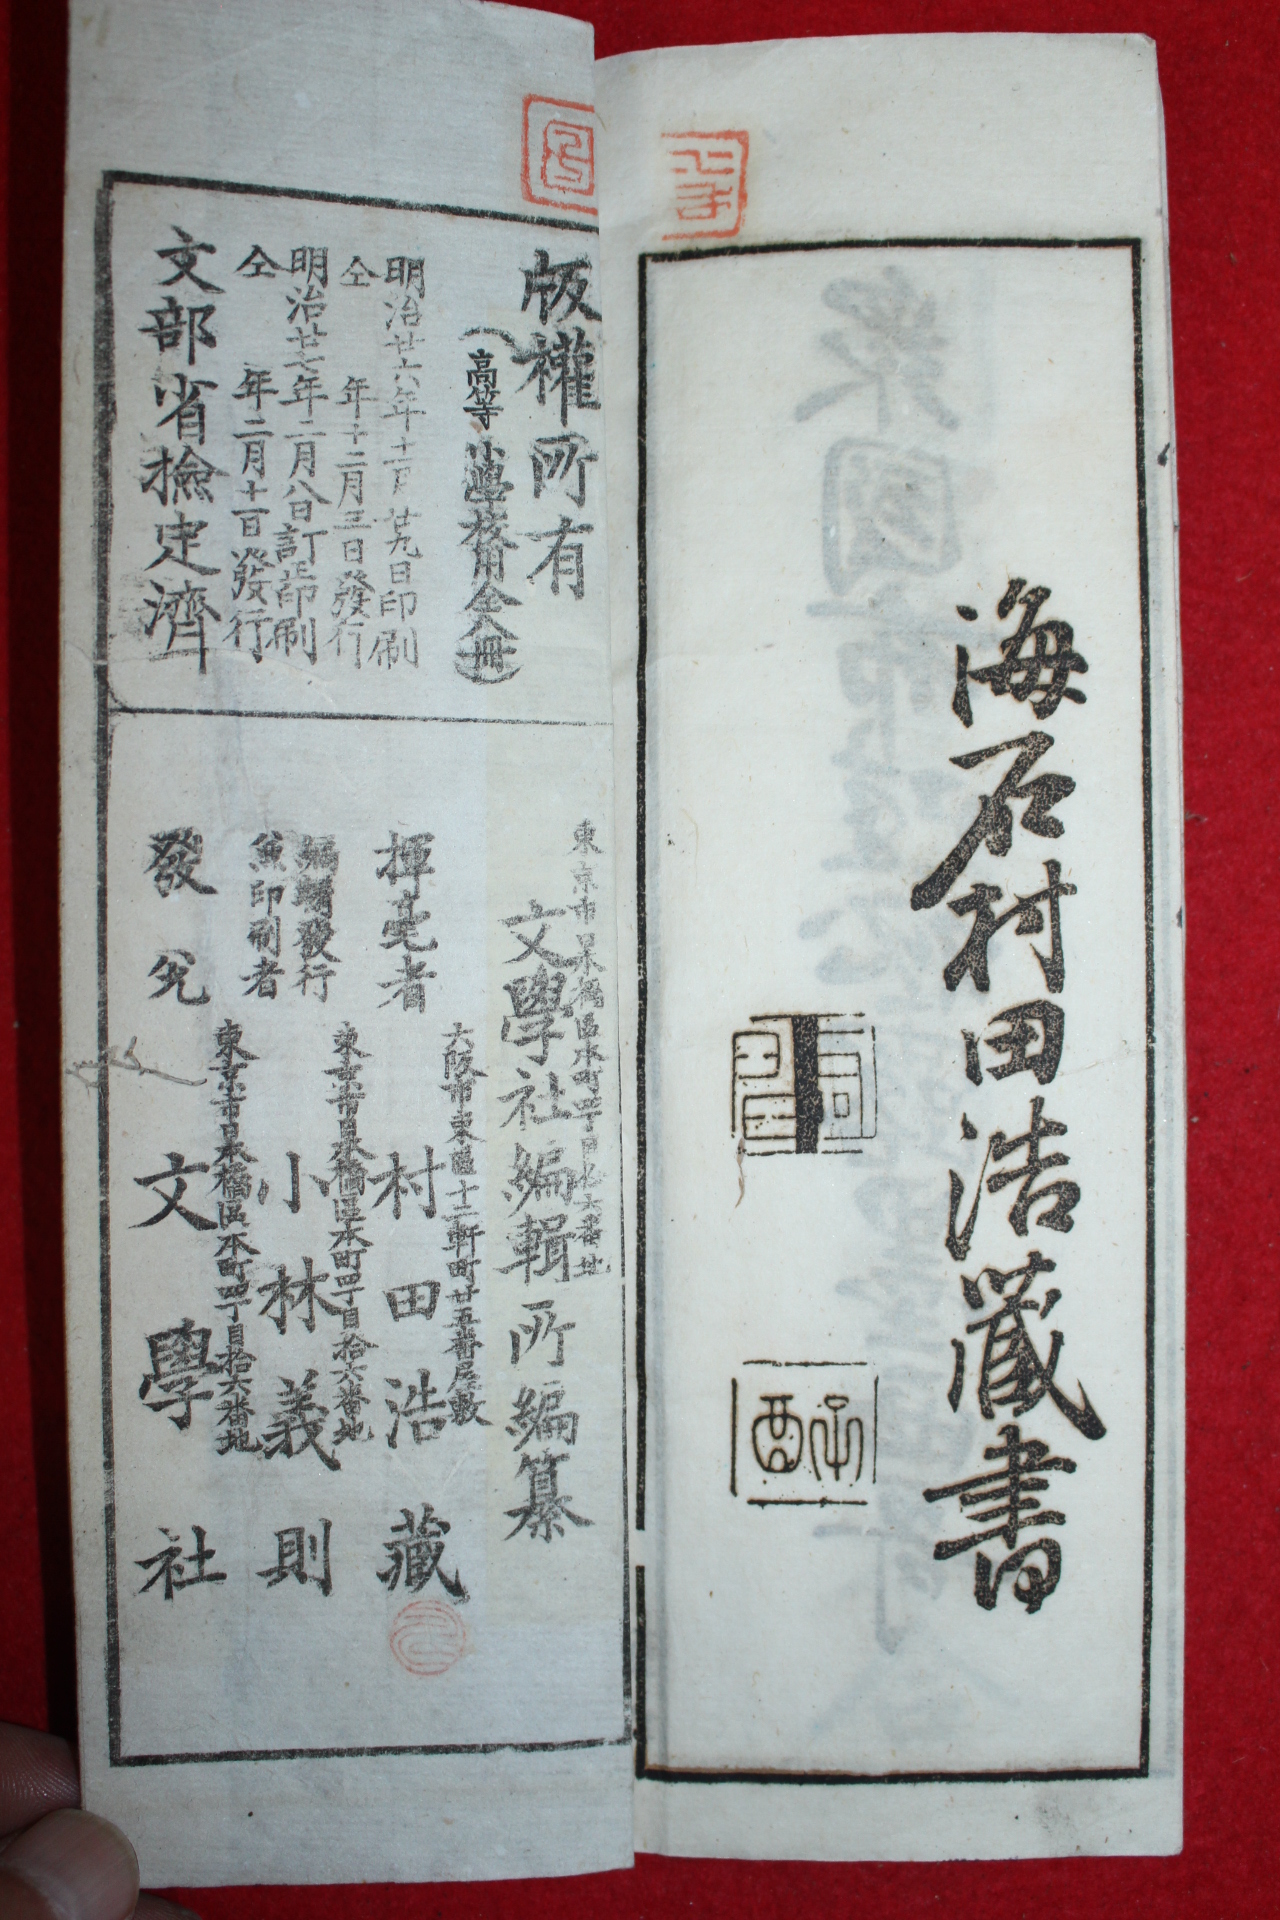 海石村田浩藏書
版權所有
(高等小學校用全八冊)
明治廿六年十一月廿九日印刷
仝年十二月三日發行
明治廿七年二月八日訂正印刷
仝年二月十一日發行
文部省檢定濟
東京市日本橋區本町四丁目拾六番地
文學社編輯所編纂
大阪市東區十二軒町廿五番屋敷
揮毫者 村田浩藏
東京市日本橋區本町四丁目拾六番地
編輯發行
兼印刷者 小林義則
東京市日本橋區本町四丁目拾六番地
發兌 文學社